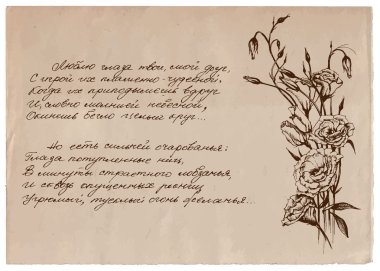 Люблю глаза твои, мой друг,
С игрой их пламенно-чудесной,
Когда их приподымешь вдруг
И, словно молнией небесной,
Окинешь бегло целый круг...
Но есть сильней очарованья:
Глаза потупленные ниц,
В минуты страстного лобзанья,
И сквозь опущенных ресниц
Угрюмый, тусклый огнь желанья...